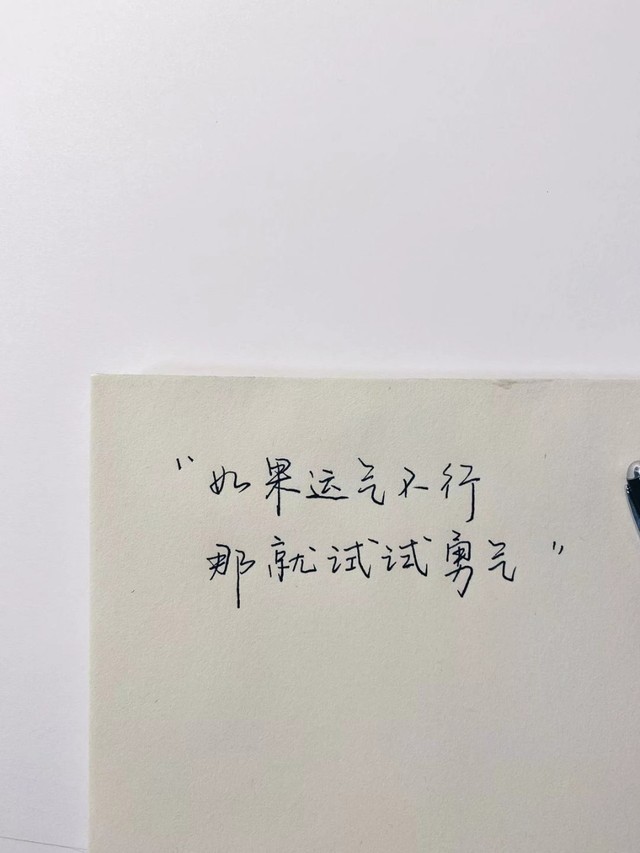 “如果运气不行
那就试试勇气”